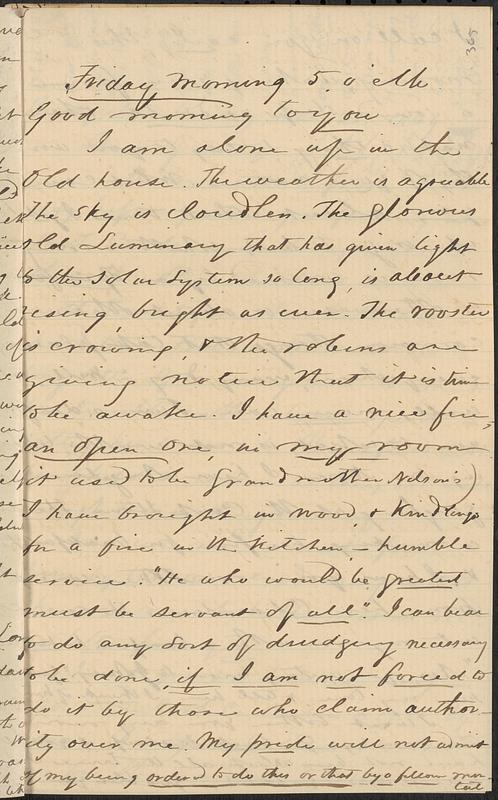 365
Friday Morning 5. o'clk
Good morning to you
I am alone up in the
Old house. The weather is agreeable
The sky is cloudless. The glorious
old Luminary that has given light
to the Solar System so long, is about
rising, bright as ever. The rooster
is crowing, & the robins are
giving notice that it is time
to be awake. I have a nice fire,
an open one, in my room
(it used to be Grandmother Nelson's)
I have brought in wood & Kindlings
for a fire in the Kitchen – humble
service "He who would be greatest
must be servant of all". I can bear
to do any sort of drudgery necessary
to be done, if I am not forced to
do it by those who claim author-
ity over me. My pride will not admit
of my being ordered to do this or that by a fellow mor-
tal